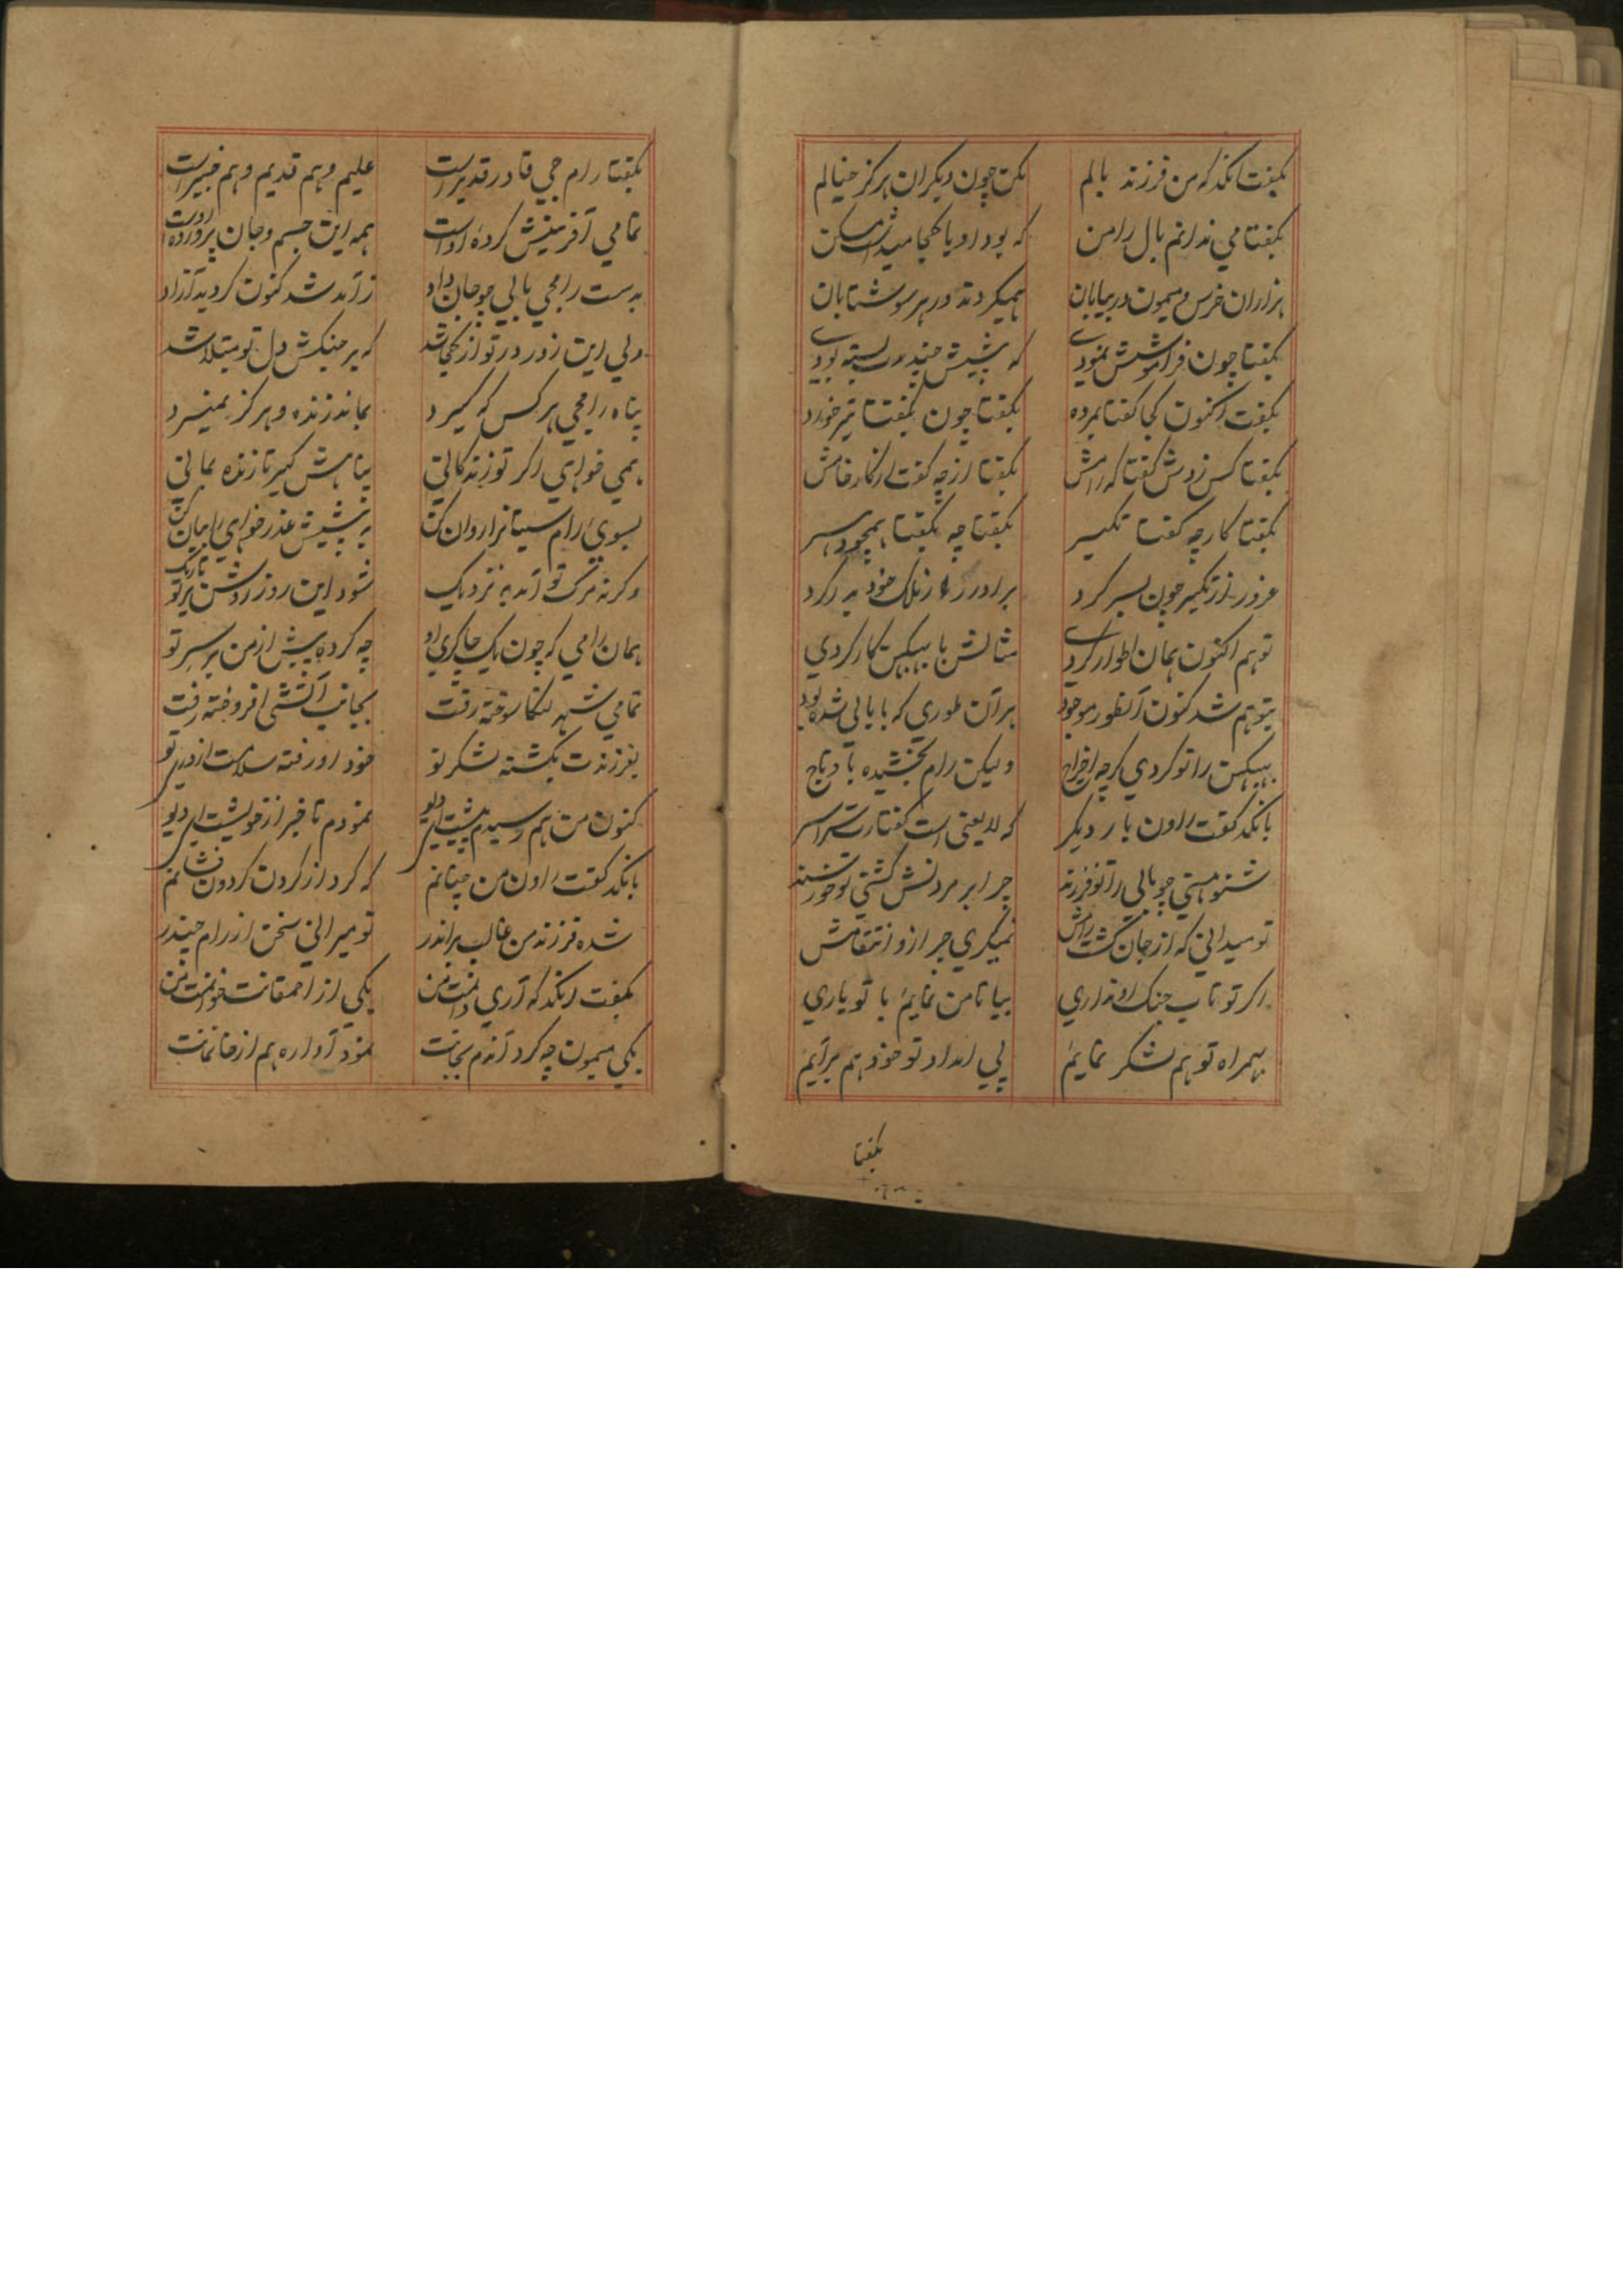 بگفت انگد که من فرزند بالم    مکن چون دیگران هرگز خیالم
بگفتا می ندانم بال را من    که بود او یا کجا میداشت مسکن
هزاران خرس و میمون در بیابان    همیگردند در هر سو شتابان
بگفتا چون فراموشش نمودی    که پیشش چند بسته بودی
بگفت اکنون کجا گفتا بمرده    بگفتا چون بگفتا تیر خورده
بگفتا کس زدش گفتا که رامش    بگفتا از چه گفت از کار خامش
بگفتا کار چه گفتا تکبر    بگفتا چه بگفتا همچو
غرور از تکبر چون بسر کرد    برادر را ز ملک خود بدر کرد
تو هم اکنون همان اطوار کردی    مثالش با ببیکهن کار کردی
بتو هم شد کنون آنطور موجود    بر آن طوری که با بالی شده بود
ببیکهن را تو کردی گرچه اخراج    ولیکن رام بخشیده با و تاج
بانگد گفت راون بار دیگر    که لا یعنی است گفتارت سراسر
شنو هستی چو بالی را تو فرزند    چرا بر مردنش گشتی تو خورسند
تو میدانی که از جان کشت رامش    نمیگیری چرا زو انتقامش
اگر تو تاب جنگ او نداری    بیا تا من نمایم با تو یاری
بهمراه تو هم لشکر نمایم    پی امداد تو خود هم برآیم
بگفتا
بگفتا رام جی قادر قدیر است    علیم و هم قدیم و هم خبیر است
تمامی آفرینش کرده اوست    همه این جسم و جان پرورده اوست
بدست رامجی بالی چو جان داد    ز آمد شد کنون گردید آزاد
ولی این زور در تو از کجا شد    که بر جنگش دل تو مبتلا شد
پناه رامجی هر کس که گیرد    بماند زنده و هرگز نمیرد
همی خواهی اگر تو زندگانی    پناهش گیر تا زنده بمانی
بسوی رام سیتا را روان کن    به پیشش عذر خواهی را بیان کن
وگرنه مرگ تو آمد به نزدیک    شود این روز روشن بر تو تاریک
همان رامی که چون یک چاکری او    چه کرده پیش از من بر سر تو
تمامی شهر لنکا سوخته رفت    بجانب آتشی افروخته رفت
بفرزندت بکشته لشکر تو    خود او رفته سلامت از در تو
کنون من هم رسیدم پیشت ای دیو    نمودم تا خبر از خویشت ای دیو
بانگد گفت راون من چنانم    که گرد از گردن گردون فشانم
شده فرزند من غالب بر اندر    تو میرانی سخن از رام چندر
بگفت انگد که آری دانمت من    یکی از احمقانت خوانمت من
یکی میمون چه کرد آندم بجانت    نمود آواره هم از خانمانت